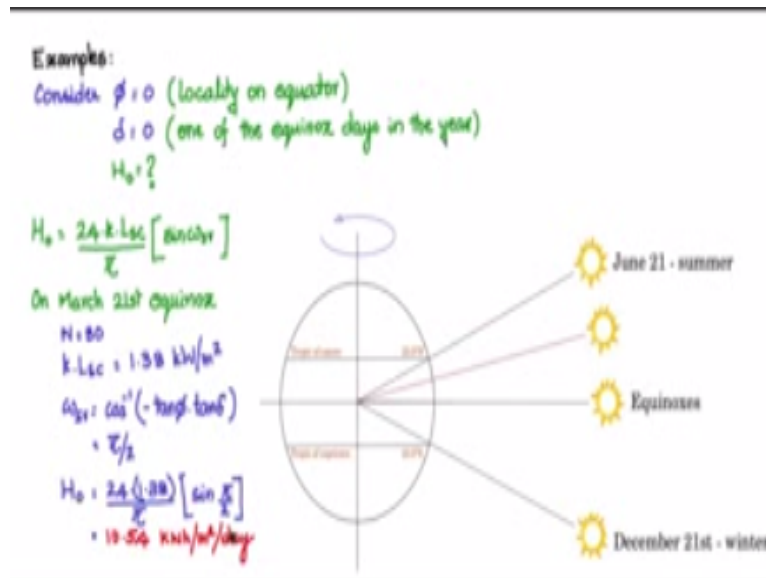 Examples:
Consider φ = 0 (locality on equator)
δ = 0 (one of the equinox days in the year)
H₀ = ?
H₀ = 24·k·Lsc/π [sin ωsr]
On March 21st equinox
N = 80
k·Lsc = 1.38 kW/m²
ωsr = cos⁻¹(-tanφ·tanδ)
= π/2
H₀ = 24(1.38)/π [sin π/2]
= 10.54 kWh/m²/day
June 21 - summer
Tropic of cancer
Equinoxes
Tropic of capricorn
December 21st - winter